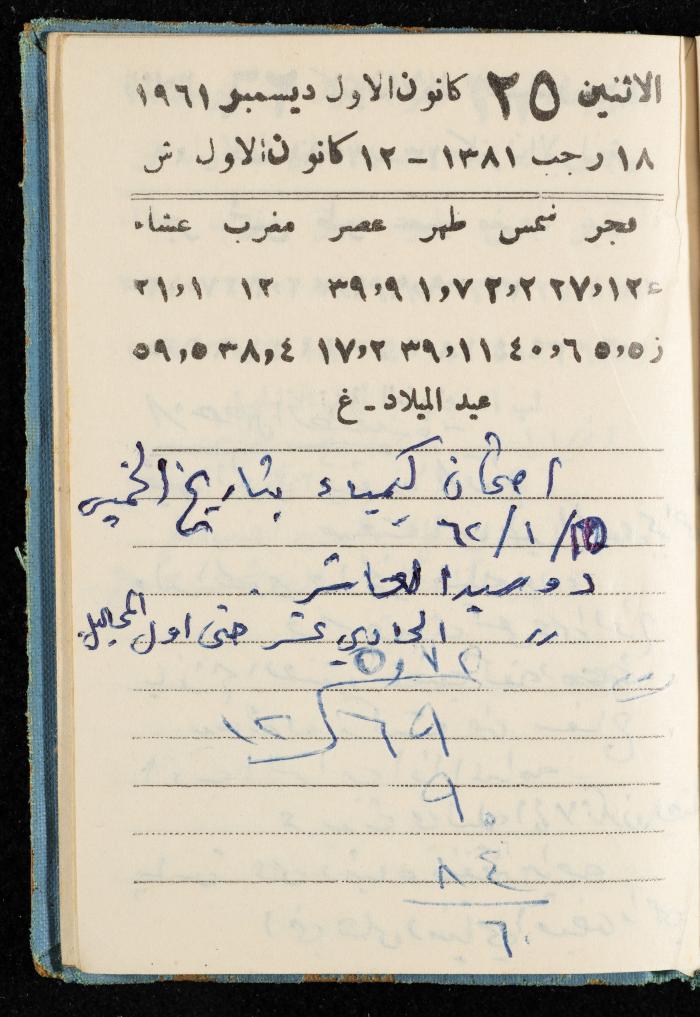 الاثنين ٢٥ كانون الاول ديسمبر ١٩٦١
١٨ رجب ١٣٨١ - ١٢ كانون الاول ش
فجر شمس ظهر عصر مغرب عشاء
ء ١٢،٢٧ ٢،٢ ٧،١ ٩،٣٩ ١٢ ١،٢١
ز ٥،٥ ٦،٤٠ ١١،٣٩ ٢،١٧ ٤،٣٨ ٥،٥٩
عيد الميلاد - غ
امتحان كيمياء بتاريخ الخميس
/١/٦٢
دوسيه العاشر
〃 الحادي عشر حتى اول المحاليل
٥،٧٢
١٢ ٦٩
٩٠
٨٤
٦٠